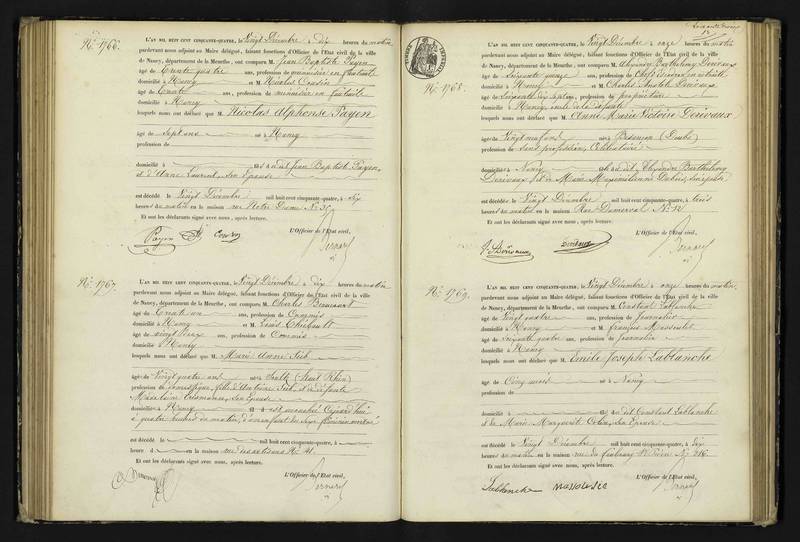 No. 1766.
L'AN MIL HUIT CENT CINQUANTE-QUATRE, le Vingt Décembre à dix heures du matin
pardevant nous adjoint au Maire délégué, faisant fonctions d'Officier de l'Etat civil de la ville
de Nancy, département de la Meurthe, ont comparu M. Jean Baptiste Payen
âgé de Trente quatre ans, profession de menuisier en fauteuils
domicilié à Nancy et M. Nicolas Cousin
âgé de Trente ans, profession de menuisier en fauteuils
domicilié à Nancy
lesquels nous ont déclaré que M. Nicolas Alphonse Payen
âgé de Sept ans né à Nancy
profession de
domicilié à dit Jean Baptiste Payen,
et d'Anne Laurent, son Epouse
est décédé le Vingt Décembre mil huit cent cinquante-quatre, à six
heures du matin en la maison rue Notre Dame No. 36
Et ont les déclarants signé avec nous, après lecture.
L'Officier de l'Etat civil,
Payen
No. 1767.
L'AN MIL HUIT CENT CINQUANTE-QUATRE, le Vingt Décembre à dix heures du matin
pardevant nous adjoint au Maire délégué, faisant fonctions d'Officier de l'Etat civil de la ville
de Nancy, département de la Meurthe, ont comparu M. Charles
âgé de Trente un ans, profession de Commis
domicilié à Nancy et M. Louis Thiébault
âgé de Vingt ans, profession de Commis
domicilié à Nancy
lesquels nous ont déclaré que M. Marie Anne
âgé de Vingt quatre ans né à Soultz (Haut Rhin)
profession de domestique, fille d'Antoine et de défunte
Madelaine son Epouse
domicilié à Nancy est accouchée Cejourd'hui
à quatre heures du matin, d'un enfant du Sexe féminin mort né
est décédé le mil huit cent cinquante-quatre, à
heures d en la maison rue des artisans No. 41.
Et ont les déclarants signé avec nous, après lecture.
L'Officier de l'Etat civil,
No. 1768.
L'AN MIL HUIT CENT CINQUANTE-QUATRE, le Vingt Décembre à onze heures du matin
pardevant nous adjoint au Maire délégué, faisant fonctions d'Officier de l'Etat civil de la ville
de Nancy, département de la Meurthe, ont comparu M. Alexandre Barthélemy
âgé de Soixante quinze ans, profession de Chef de division en retraite
domicilié à Nancy et M. Charles Anatole
âgé de ans, profession de propriétaire
domicilié à Nancy, oncle de la défunte
lesquels nous ont déclaré que M. Anne Marie Victoire
âgé de Vingt neuf ans né à Besançon (Doubs)
profession de Sans profession, Célibataire
domicilié à Nancy dit Alexandre Barthélemy
et de Marie Maximilienne son épouse
est décédé le Vingt Décembre mil huit cent cinquante-quatre, à trois
heures du matin en la maison Rue No. 12
Et ont les déclarants signé avec nous, après lecture.
L'Officier de l'Etat civil,
No. 1769.
L'AN MIL HUIT CENT CINQUANTE-QUATRE, le Vingt Décembre à onze heures du matin
pardevant nous adjoint au Maire délégué, faisant fonctions d'Officier de l'Etat civil de la ville
de Nancy, département de la Meurthe, ont comparu M. Constant Lablanche
âgé de Vingt quatre ans, profession de Journalier
domicilié à Nancy et M. François
âgé de Soixante quatre ans, profession de Journalier
domicilié à Nancy
lesquels nous ont déclaré que M. Emile Joseph Lablanche
âgé de Cinq mois né à Nancy
profession de
domicilié à dit Constant Lablanche
et de Marie Marguerite Colin, son Epouse
est décédé le Vingt Décembre mil huit cent cinquante-quatre, à dix
heures du matin en la maison rue du faubourg St. Pierre No. 216
Et ont les déclarants signé avec nous, après lecture.
L'Officier de l'Etat civil,
Lablanche